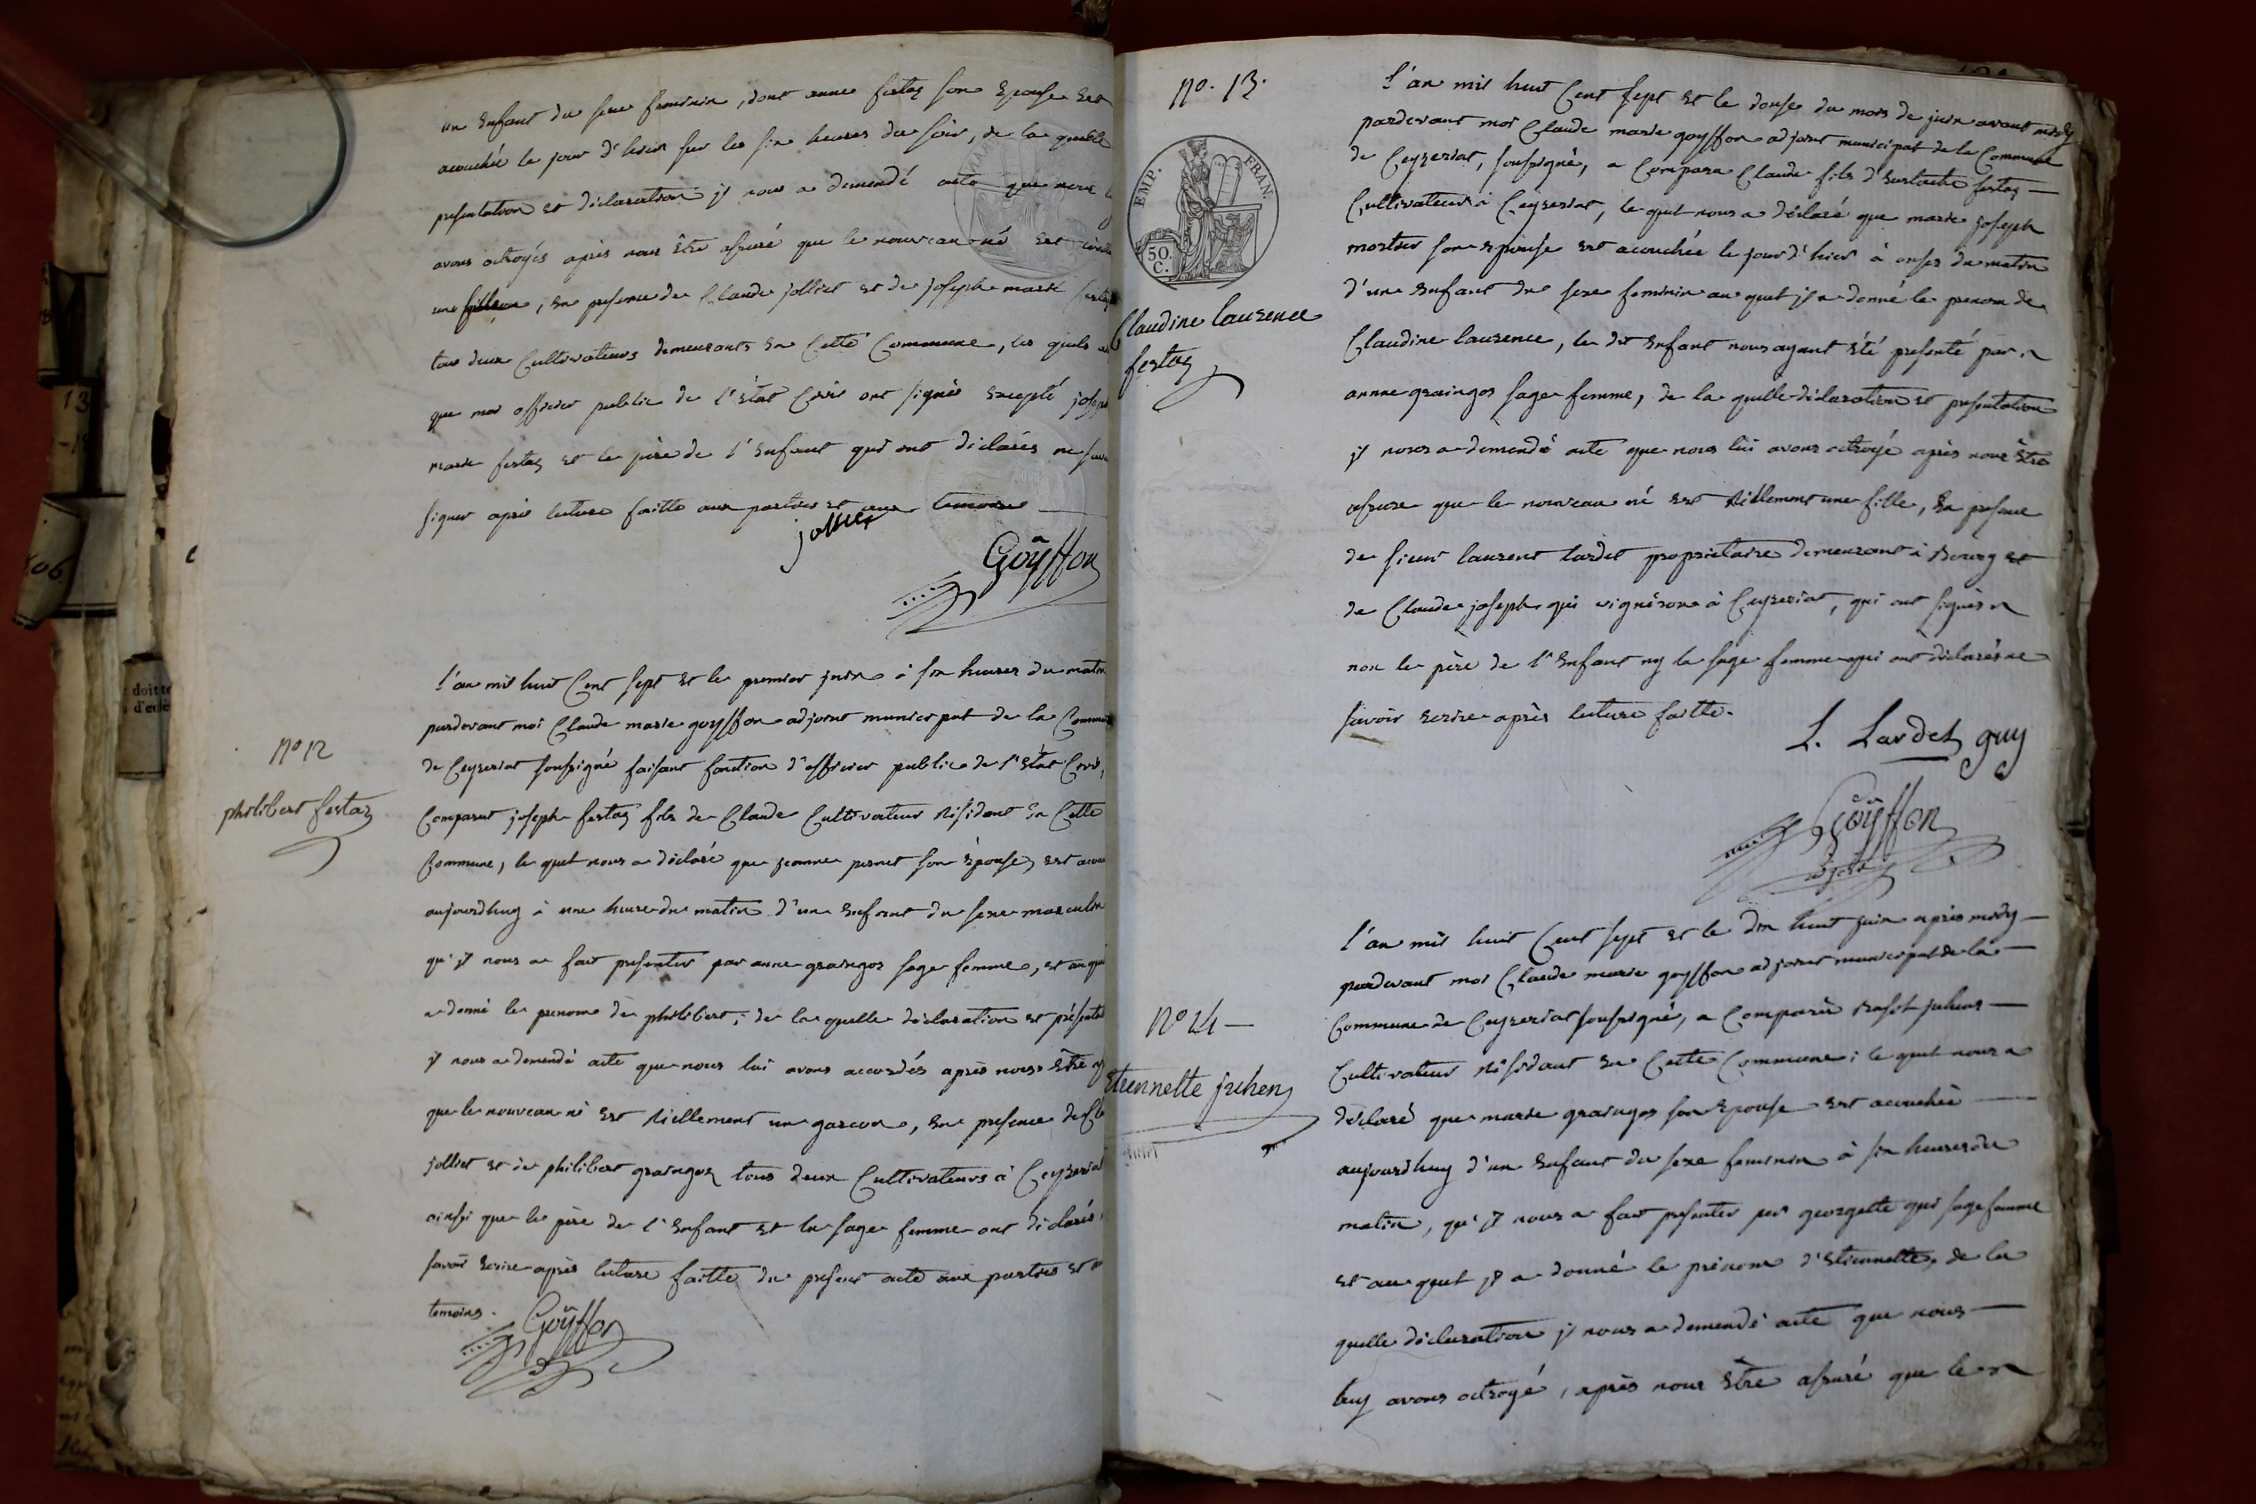 un Enfant du sexe feminin, dont anne festaz son Epouse est
acouchée le jour d'hier sur les six heures du soir, de la quelle
presentation et déclaration il nous a demendé acte que nous
avons octroyés après nous être assuré que le nouveau né est
une fille, en presence de Claude jolliet et de joseph marie festaz
tous deux Cultivateurs demeurants en Cette Commune, les quels
que moi officier public de l'état Civil ont signés Excepté joseph
marie festaz et le père de l'Enfant qui ont déclarés ne
signer après lecture faitte aux parties et aux temoins
jolliet
Goÿffon
N° 12
philibert festaz
l'an mil huit Cent sept et le premier juin à six heures du matin
pardevant moi Claude marie goyffon adjoint municipal de la Commune
de Ceyzeriat soussigné faisant fonction d'officier public de l'état Civil,
Comparut joseph festaz fils de Claude Cultivateur Résidant En Cette
Commune, le quel nous a déclaré que jeanne pernet son épouse, est
aujourdhuy à une heure du matin d'un Enfant du sexe masculin
qu'il nous a fait presenter par anne graingos sage femme, et au quel
a donné le prenom de philibert; de la quelle déclaration et présentation
il nous a demendé acte que nous lui avons accordés après nous être
que le nouveau né est Réellement un garcon, en presence de
jolliet et de philibert graingos tous deux Cultivateurs à Ceyzeriat
ainsi que le père de l'Enfant et la sage femme ont déclarés
savoir Ecrire après lecture faitte du present acte aux parties et
temoins.
Goÿffon
N°. 13.
EMP. FRAN.
50. C.
Claudine laurence
festaz
l'an mil huit Cent sept et le douse du mois de juin avant midy
pardevant moi Claude marie goyffon adjoint municipal de la Commune
de Ceyzeriat, soussigné, a Comparu Claude fils d'Eustache festaz
Cultivateur à Ceyzeriat, le quel nous a déclaré que marie joseph
mortier son Epouse est acouchée le jour d'hier à onses du matin
d'une Enfant du sexe feminin au quel il a donné le prenom de
Claudine laurence, le dit Enfant nous ayant été presenté par
anne graingos sage femme, de la quelle déclaration et presentation
il nous a demendé acte que nous lui avons octroyé après nous être
assure que le nouveau né est Réellement une fille, En presence
de sieur laurent lardet proprietaire demeurant à Bourg et
de Claude joseph guÿ vigneron à Ceyzeriat, qui ont signés
non le père de l'Enfant ny la sage femme qui ont déclarés ne
savoir Ecrire après lecture faitte.
L. Lardet guy
Goÿffon
adjoint
N° 14
Etiennette juhen
l'an mil huit Cent sept et le dix huit juin après midy
pardevant moi Claude marie goyffon adjoint municipal de la
Commune de Ceyzeriat soussigné, a Comparu juhen
Cultivateur Résidant En Cette Commune; le quel nous a
déclaré que marie graingos son Epouse est acouchée
aujourdhuy d'un Enfant du sexe feminin à six heures du
matin, qu'il nous a fait presenter par georgette guÿ sage femme
et au quel il a donné le prénom d'Etiennette, de la
quelle déclaration il nous a demendé acte que nous
luy avons octroyé, après nous être assuré que le